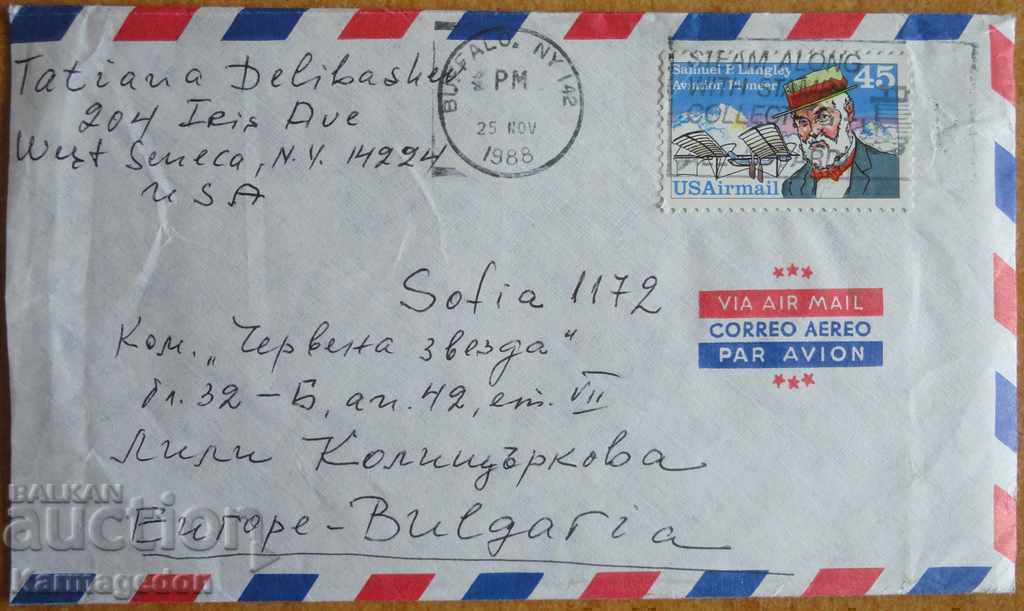 Tatiana Delibasheva
204 Iris Ave
West Seneca, N.Y. 14224
USA
BUFFALO, NY 142
PM
25 NOV
1988
STEAM ALONG
COLLECT
Samuel P. Langley
Aviation Pioneer
45
USAirmail
VIA AIR MAIL
CORREO AEREO
PAR AVION
Sofia 1172
Ком. „Червена звезда"
бл. 32 – Б, ап. 42, ет. VII
Лили Колищъркова
Europe-Bulgaria
BALKAN
auction
Karmagedon